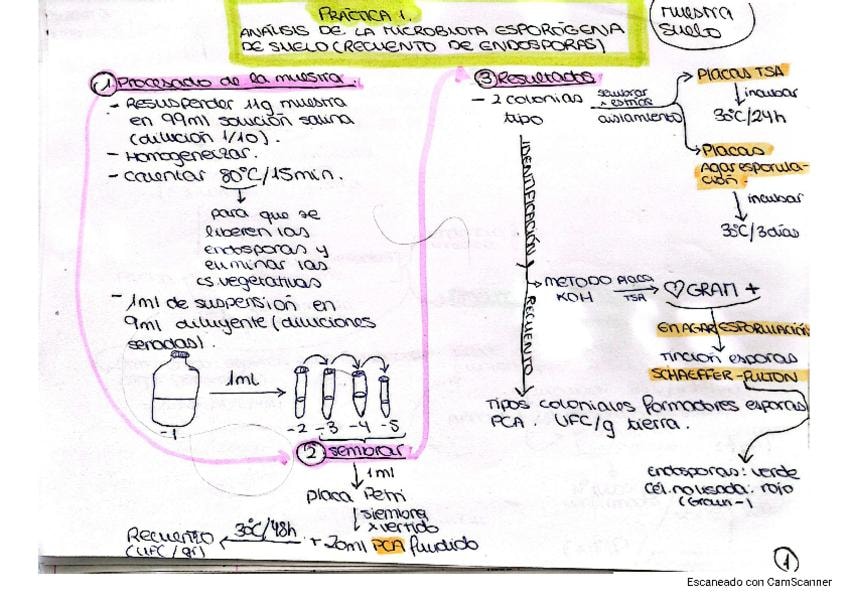 PRÁCTICA 1.
ANÁLISIS DE LA MICROBIOTA ESPORÓGENA
DE SUELO (RECUENTO DE ENDOSPORAS)
MUESTRA
SUELO
1 Procesado de la muestra.
- Resuspender 11g muestra
en 99ml solución salina
(dilución 1/10).
- Homogeneizar.
- Calentar 80ºC/15min.
para que se
liberen las
endosporas y
eliminar las
cs vegetativas
- 1ml de suspensión en
9ml diluyente (diluciones
seriadas).
1ml
-1
-2 -3 -4 -5
2 sembrar
1ml
placa Petri
siembra
x vertido
+ 20ml PCA fundido
30ºC/48h
Recuento
(UFC/gr)
3 Resultados
- 2 colonias
tipo
sembrar
x estrías
aislamiento
Placas TSA
incubar
30ºC/24h
Placas
Agar esporula-
ción.
incubar
30ºC/3días
IDENTIFICACIÓN
RECUENTO
METODO
KOH
placa
TSA
GRAM +
EN AGAR ESPORULACIÓN
tinción esporas
SCHAEFFER-FULTON
Tipos coloniales formadores esporas
PCA. UFC/g tierra.
Endosporas: verde
Cél. no usada: rojo
(Gram -)
1
Escaneado con CamScanner